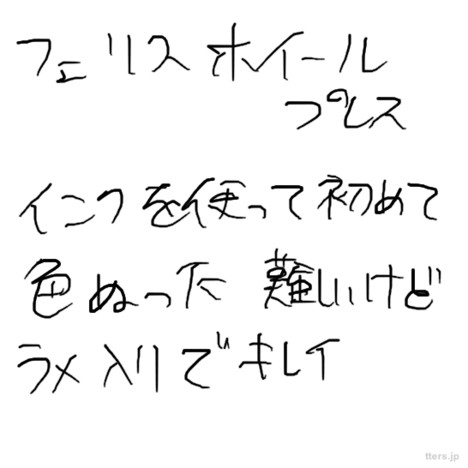 フェリスホイール
プレス
インクを使って初めて
色ぬった 難しいけど
ラメ入りでキレイ
tters.jp